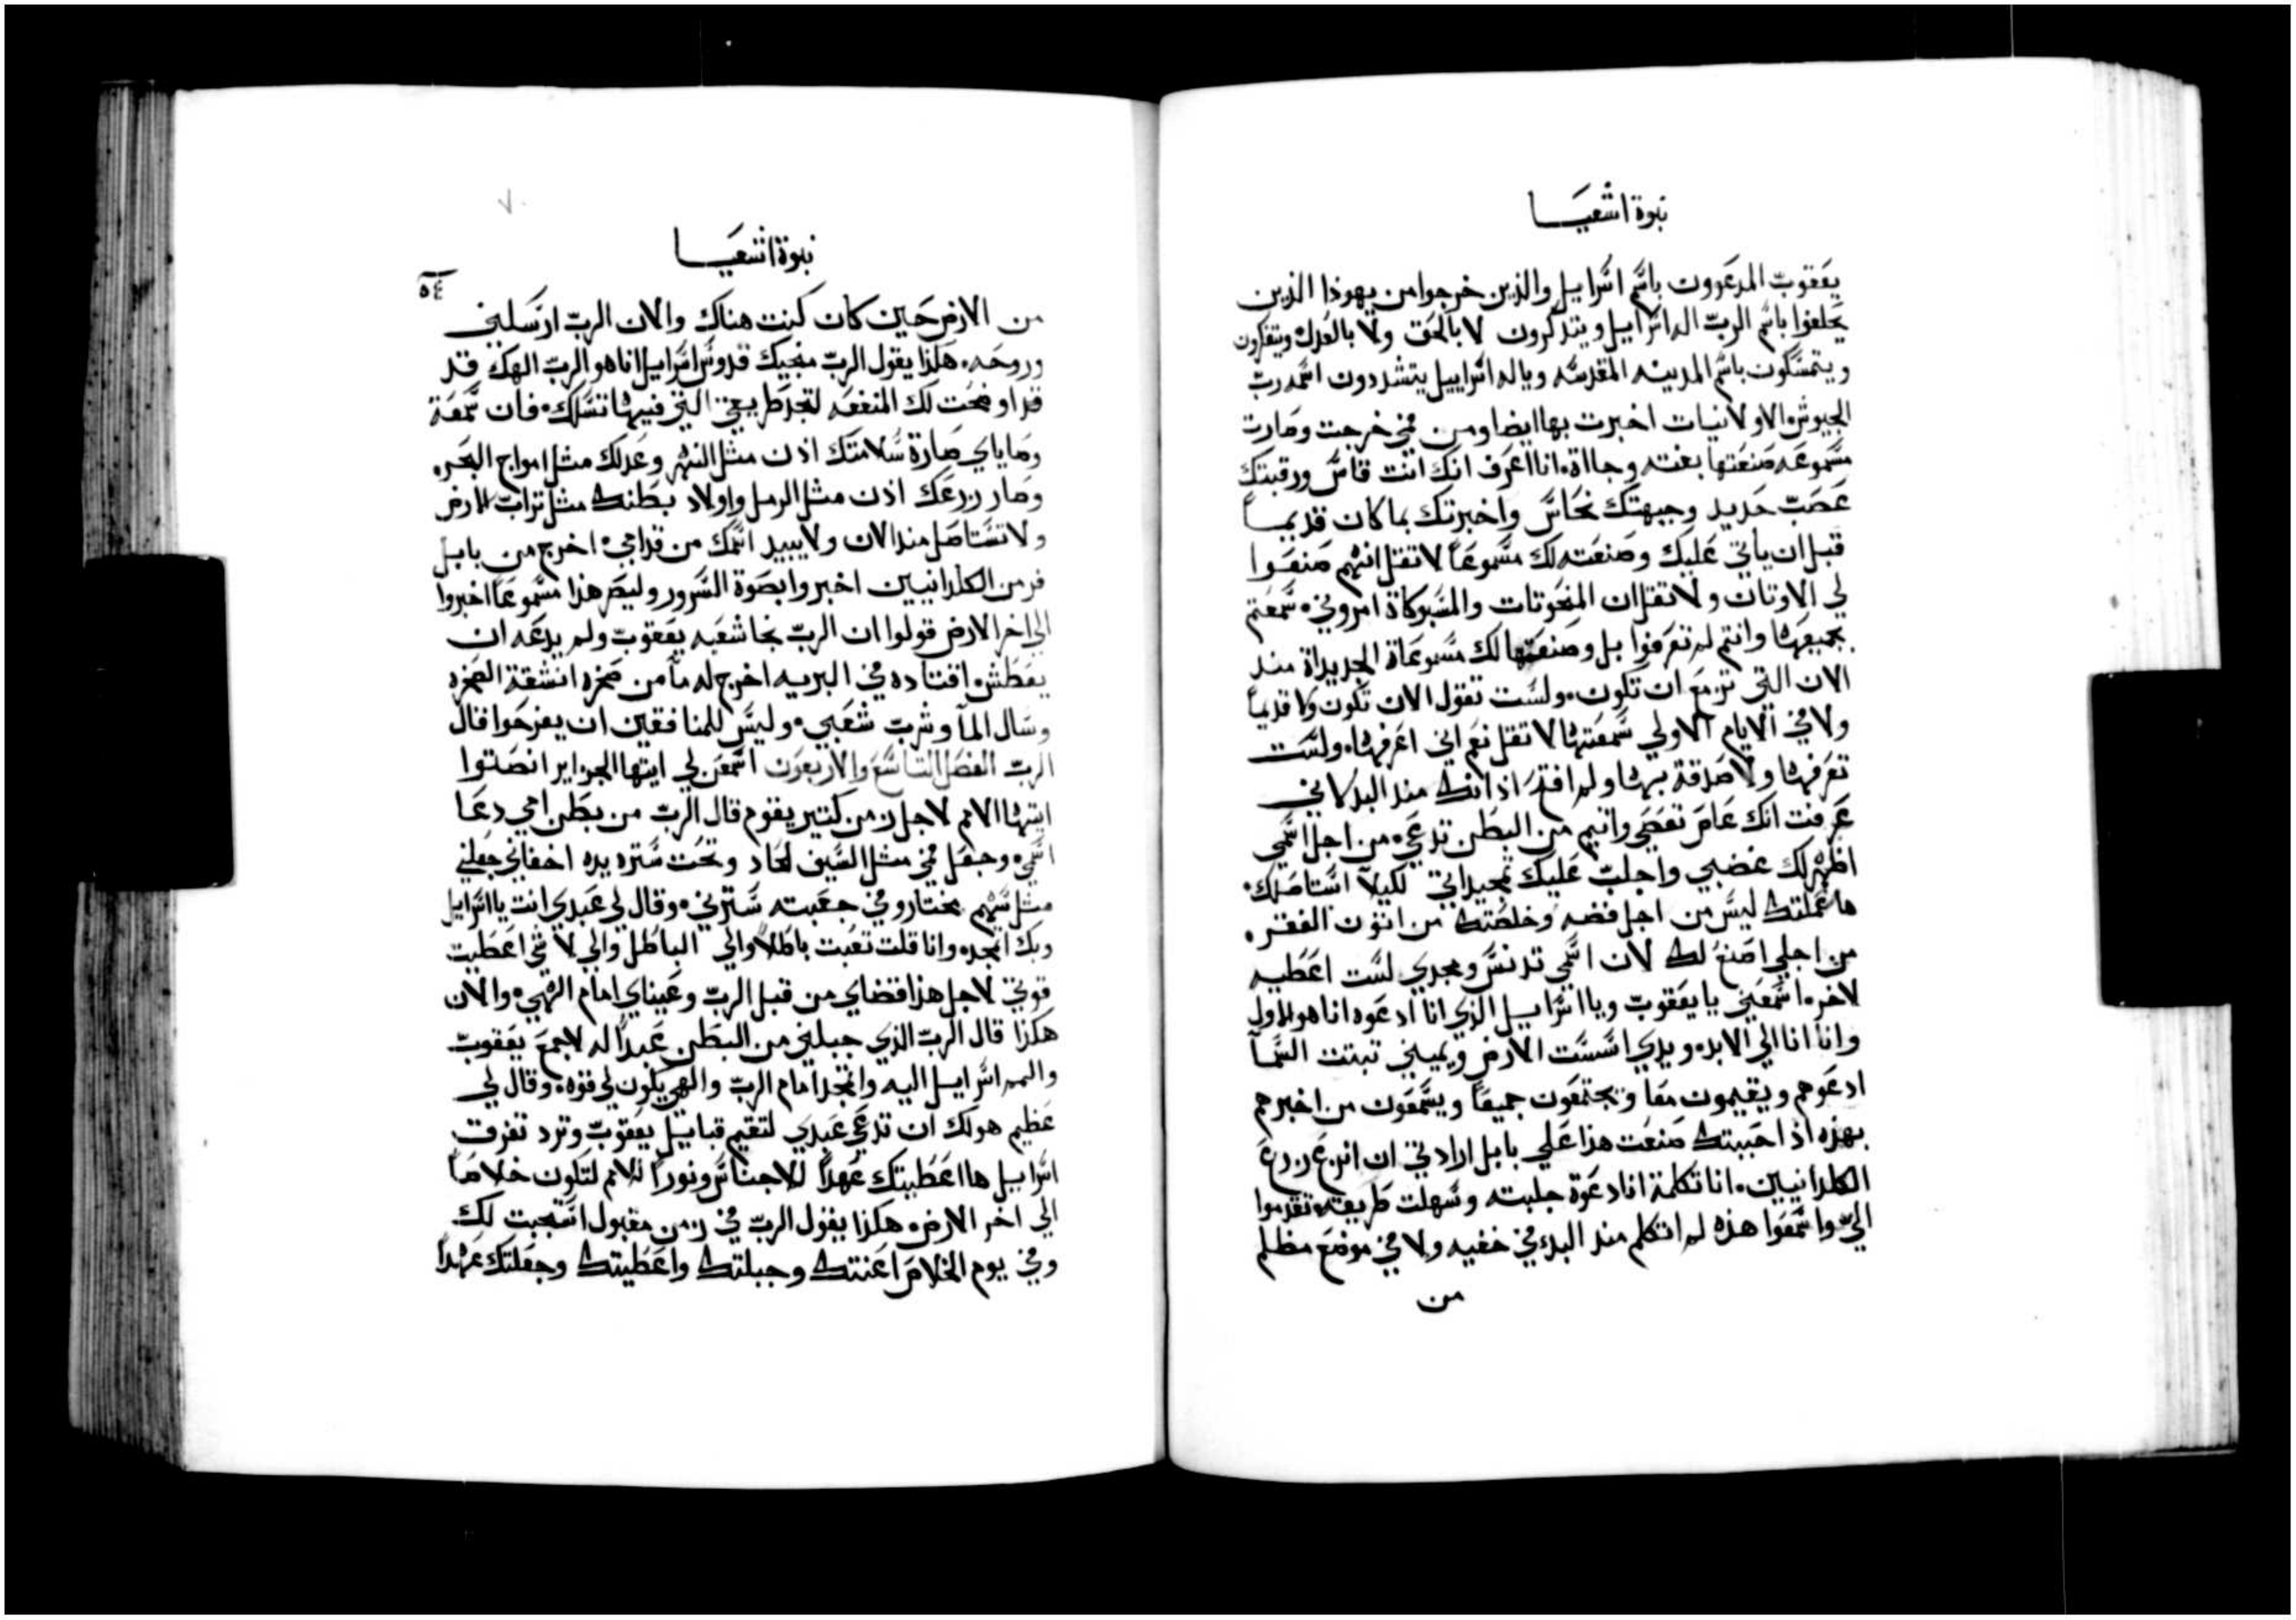 نبوة اشعيا
يعقوب المدعوون باسم اسرايل والذين خرجوا من يهوذا الذين
يحلفوا باسم الرب اله اسرايل ويتذكرون لا بالحق ولا بالعدل ويتفكرون
ويتمسكون باسم المدينه المقدسه وباله اسراييل يتشددون اسمه رب
الجيوش الاولانيات اخبرت بها ايضا ومن فمي خرجت وصارت
مسموعه صنعتها بغته وجااة انا اعرف انك انت قاس ورقبتك
عصب حديد وجبهتك نحاس واخبرتك بما كان قديما
قبل ان ياتي عليك وصنعته لك مسموعا لا تقل انهم صنعوا
لي الاوتان ولا تقل ان المنحوتات والمسبوكاة امروني سمعتم
بجميعها وانتم لم تعرفوا بل وصنعتها لك مسموعاة الجديداة مند
الان التي تزمع ان تكون ولست تقول الان تكون ولا قديما
ولا في الايام الاولي سمعتها لا تقل نعم اني اعرفها ولست
تعرفها ولا صدقة بها ولم افتح اذانك مند البد لاني
عرفت انك عاص تعصي واثيم من البطن تدعي من اجل اسمي
اظهر لك غضبي واجلب عليك تمجيداتي لكيلا استاصلك
ها عملتك ليس من اجل فضه وخلصتك من اتون الفقر
من اجلي اصنع لك لان اسمي تدنس ومجدي لست اعطيه
لاخر اسمعني يا يعقوب ويا اسراييل الذي انا ادعوه انا هو الاول
وانا انا الي الابد ويدي اسست الارض ويميني تبتت السمآ
ادعوهم ويقيمون معا ويجتمعون جميعا ويسمعون من اخبرهم
بهذه اذ احببتك صنعت هذا علي بابل ارادتي ان انزع زرع
الكلدانيين انا تكلمة انا دعوة جلبته وسهلت طريقه تقدموا
الي واسمعوا هذه لم اتكلم مند البدء في خفيه ولا في موضع مظلم
من
٥٤
نبوة اشعيا
من الارض حين كان كنت هناك والان الرب ارسلني
وروحه هكذا يقول الرب منجيك قدوس اسراييل انا هو الرب الهك قد
قد اوضحت لك المنفعه لتجد طريقي التي فيها تسلك فان سمعة
وصاياي صارة سلامتك اذن مثل النهر وعدلك مثل امواج البحر
وصار زرعك اذن مثل الرمل واولاد بطنك مثل تراب الارض
ولا تستاصل مند الان ولا يبيد اسمك من قدامي اخرج من بابل
فر من الكلدانيين اخبروا بصوة السرور وليصر هذا مسموعا اخبروا
الي اخر الارض قولوا ان الرب نجا شعبه يعقوب ولم يدعه ان
يعطش اقتاده في البريه اخرج له مآ من صخره انشقة الصخره
وسال المآ وشرب شعبي وليس للمنافقين ان يفرحوا قال
الرب الفصل التاسع والاربعون اسمعن لي ايتها الجزاير انصتوا
ايتها الامم لاجل زمن كتير يقوم قال الرب من بطن امي دعا
اسمي وجعل فمي مثل السيف الحاد وتحت ستره يده اخفاني جعلني
مثل سهم مختار وفي جعبته سترني وقال لي عبدي انت يا اسرايل
وبك اتمجد وانا قلت تعبت باطلا والي الباطل والي لا شي اعطيت
قوتي لاجل هذا قضاي من قبل الرب وعيناي امام الهي والان
هكذا قال الرب الذي جبلني من البطن عبدا له لاجمع يعقوب
والمه اسراييل اليه واتمجد امام الرب والهي يكون لي قوه وقال لي
عظيم هو لك ان تدعي عبدي لتقيم قبايل يعقوب وترد تفرق
اسراييل ها اعطيتك عهدا للاجناس ونورا للامم لتكون خلاصا
الي اخر الارض هكذا يقول الرب في زمن مقبول استجبت لك
وفي يوم الخلاص اعنتك وجبلتك واعطيتك وجعلتك عهدا